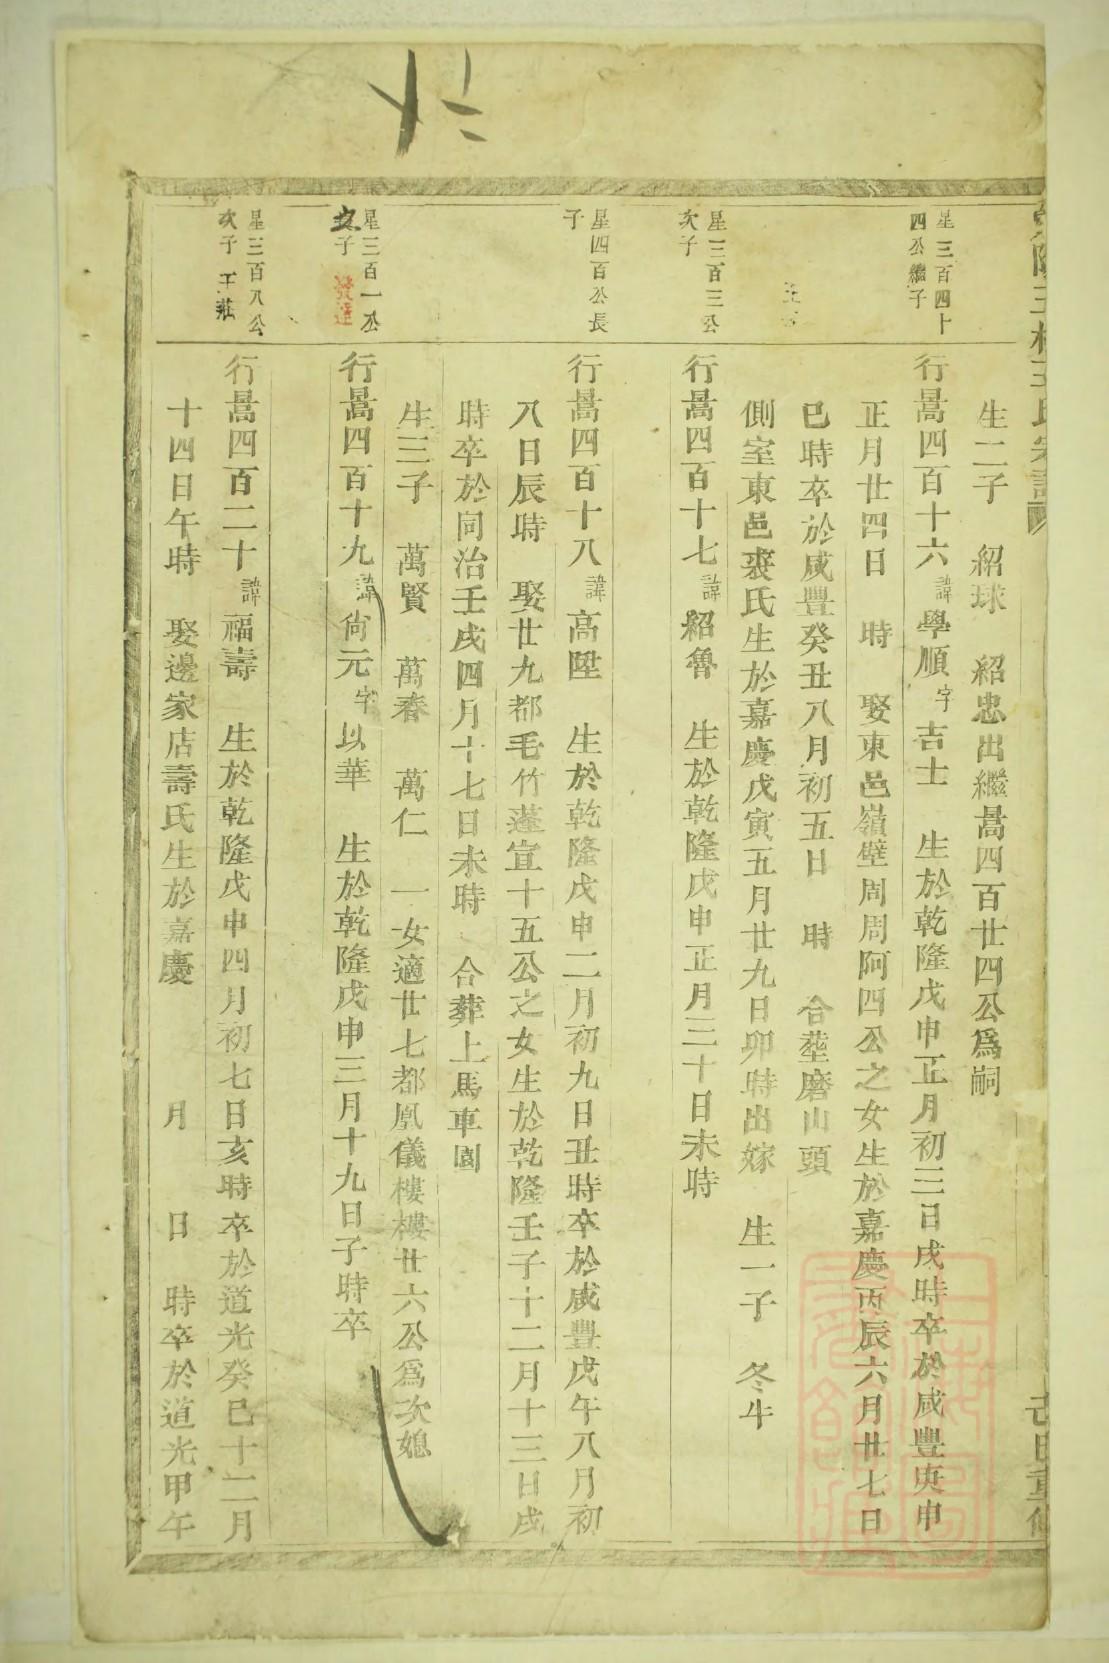 生二子　紹球　紹忠出繼暠四百廿四公爲嗣
星三百四十
四公繼子
行暠四百十六諱學順字吉士　生於乾隆戊申正月初三日戌時卒於咸豐庚申
正月廿四日　時　娶東邑嶺壁周周阿四公之女生於嘉慶丙辰六月廿七日
巳時卒於咸豐癸丑八月初五日　時　合塟磨山頭
側室東邑裘氏生於嘉慶戊寅五月廿九日卯時出嫁　生一子　冬斗
星三百三公
次子
行暠四百十七諱紹魯　生於乾隆戊申正月三十日未時
星四百公長
子
行暠四百十八諱高陞　生於乾隆戊申二月初九日丑時卒於咸豐戊午八月初
八日辰時　娶廿九都毛竹蓬宣十五公之女生於乾隆壬子十二月十三日戌
時卒於同治壬戌四月十七日未時　合葬上馬車園
生三子　萬賢　萬春　萬仁　一女適廿七都凰儀樓樓廿六公爲次媳
星三百一公
次子　發達
行暠四百十九諱尙元字以華　生於乾隆戊申三月十九日子時卒
星三百八公
次子　王莊
行暠四百二十諱福壽　生於乾隆戊申四月初七日亥時卒於道光癸巳十二月
十四日午時　娶邊家店壽氏生於嘉慶　月　日　時卒於道光甲午